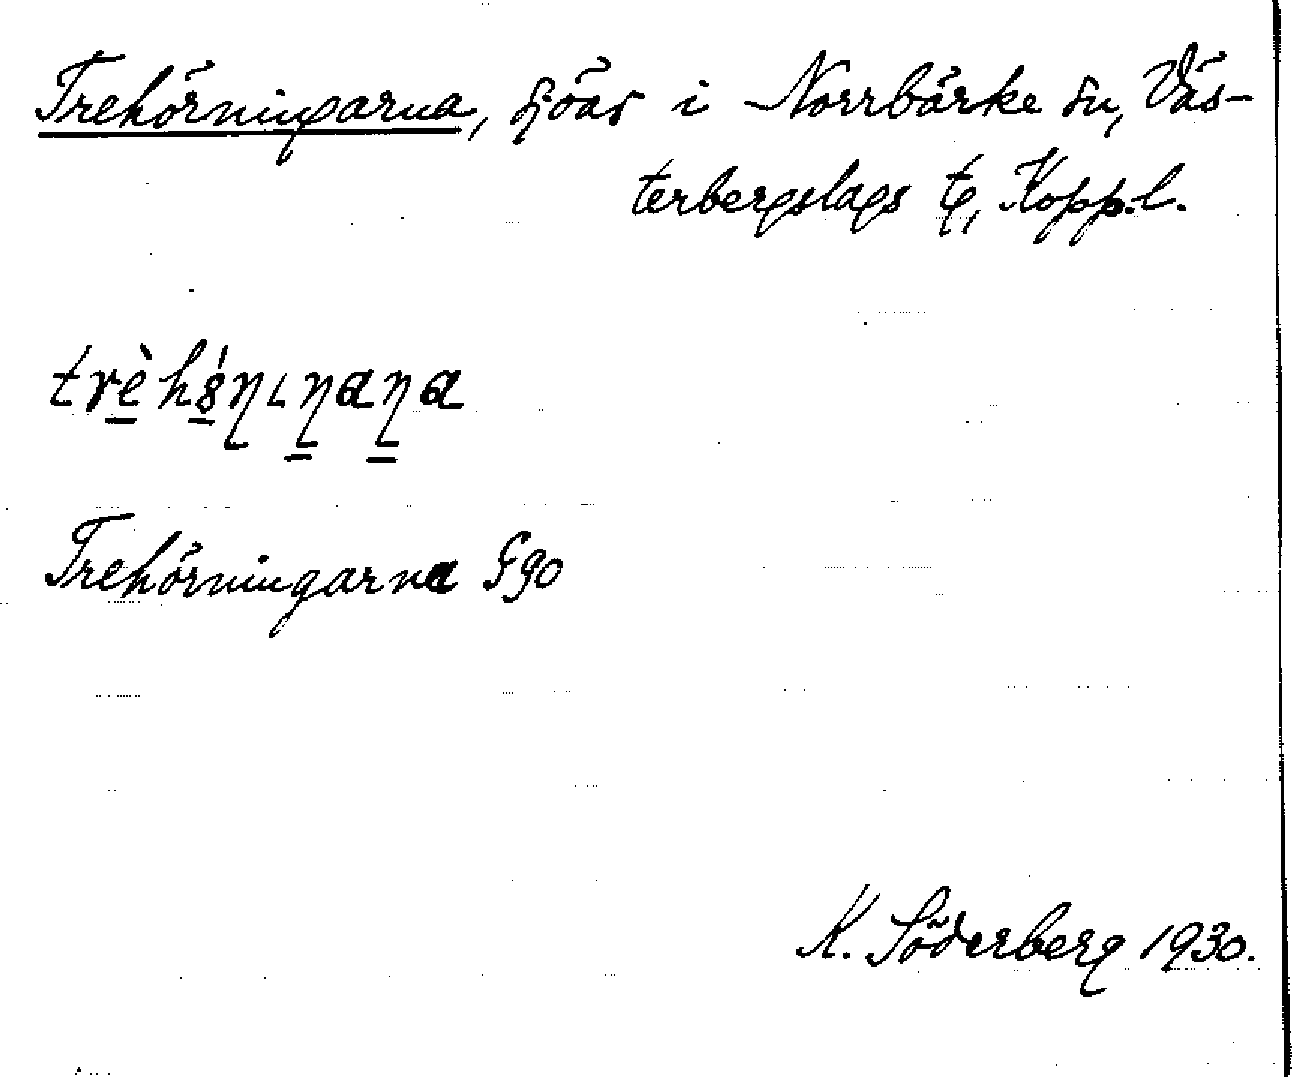 Trehörningarna, sjöar i Norrbärke sn, Väs-
terbergslags tg, Kopp.l.
Trehörningarna Fgo
K. Söderberg 1930.